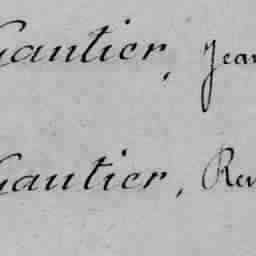 Gautier, Jean
Gautier, Rev